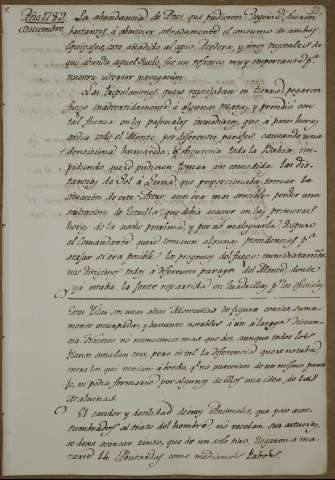 Año 1789
Diciembre
La abundancia de Peces, que pudieron cogerse, fueron
bastantes á abastecer sobradamente el consumo de ambos
Equipages, esto añadido al apio, y otros vegetales de
que abunda aquel suelo, fue un refresco muy importante pª
nuestra ulterior navegacion.
Las tripulaciones que reposaban en tierra pegaron
fuego inadvertidamente á algunas Matas, y prendió con
tal fuerza en los pajonales inmediatos, que á pocas horas
ardia todo el Monte por diferentes parages causando una
densisima humareda, y obscurecia toda la Bahia, im-
pidiendo que se pudiesen tomar con comodidad las dis-
tancias de Sol á Luna, que proporcionaba tomar la
situacion de este Puerto; aun era mas sensible perder una
ocultacion de Estrella, que debia acaecer en las primeras
horas de la noche proxima, y por no malograrla dispuso
el Comandante que se tomasen algunas providencias pª
atajar si era posible los progresos del fuego: inmediatamente
nos dirijimos todos á diferentes parages del Monte, donde
ya estaba la Gente repartida en quadrillas, y los oficiales
Estas Islas son unas altas Montañas de figura conica suma-
mente escarpadas, y bastante notables á una larga distan-
cia. Nosotros no reconocimos mas que dos, aunque todos los
Planos señalan tres, pero es tal la diferencia que se notaba
entre los que venian á bordo, que no parecian de un mismo para-
je, ni podia formarse por algunos de ellos una idea de las
C El candor y docilidad de estos Animales, que poco acos-
tumbrados al trato del hombre no recelan sus astucias,
se dexa acercar tanto, que de un solo tiro llegaron á ma-
tarse 14. como medianos Pabos.